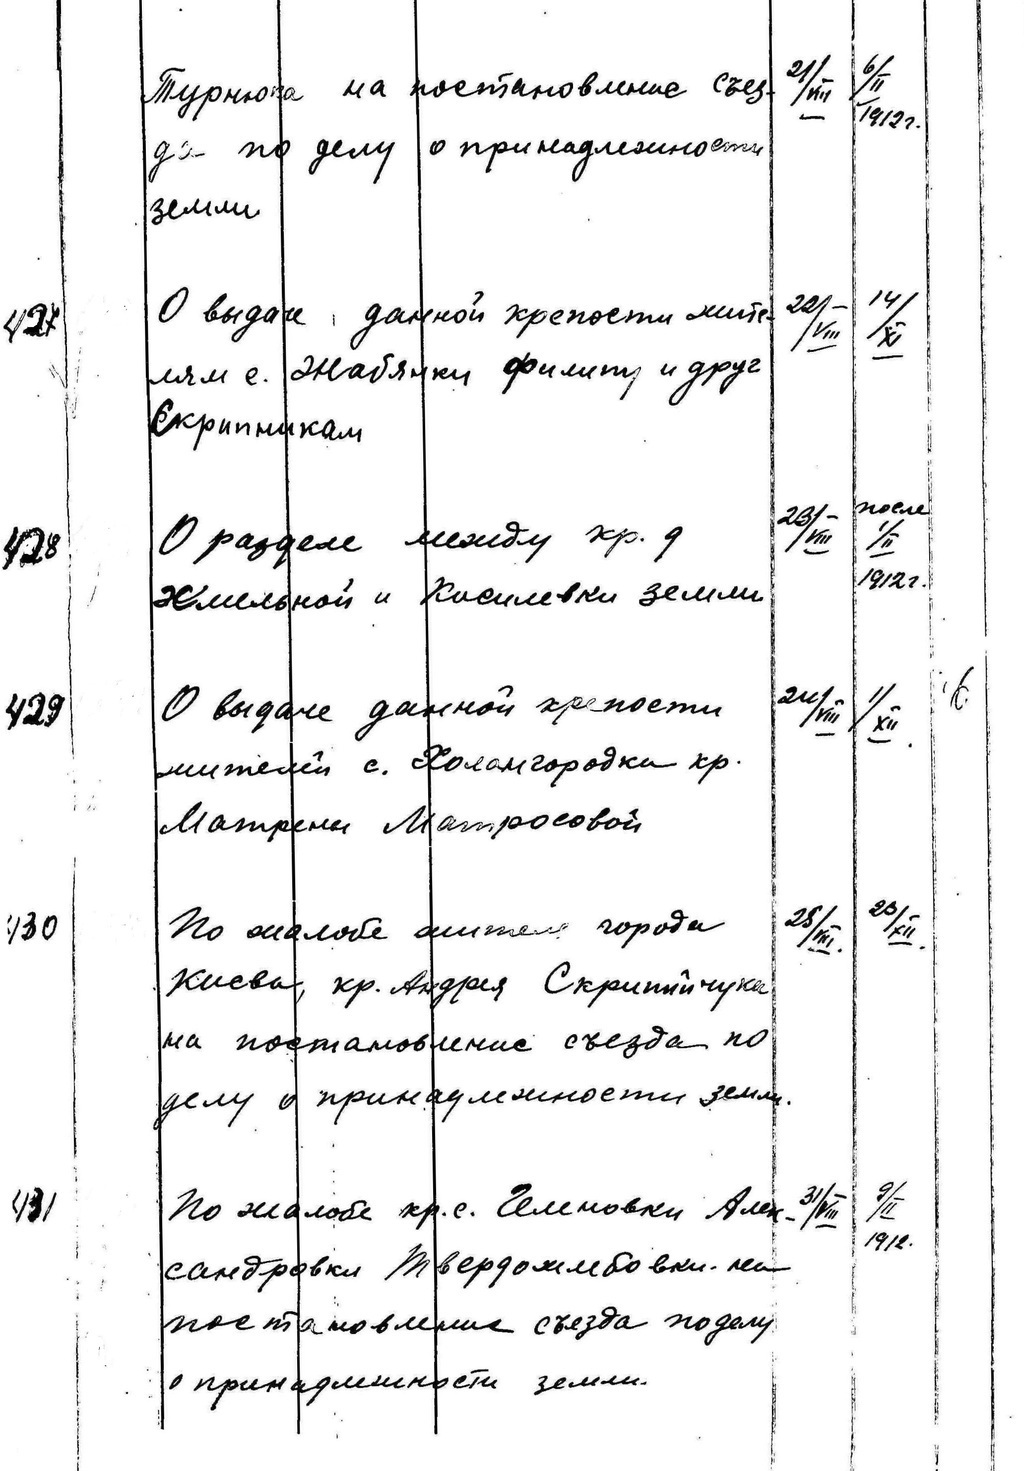 Турнюка на постановление съез- 21/VIII 6/II
да по делу о принадлежности 1912г.
земли
427 О выдаче данной крепости жите- 22/VIII 14/XI
лям с. Жабянки Филипу и друг
Скрипникам
428 О разделе между кр. д 23/VIII после 1/II
Хмельной и Киселевки земли 1912г.
429 О выдаче данной крепости 24/VIII 1/XII
жителей с. кр.
Матрены Матросовой
430 По жалобе жителя города 25/VIII. 23/XII.
Киева, кр. Андрея Скрипийчука
на постановление съезда по
делу о принадлежности земли.
431 По жалобе кр. с. Алек- 31/VIII 9/II
сандровки Твердохлебовки на 1912.
постановление съезда по делу
о принадлежности земли.